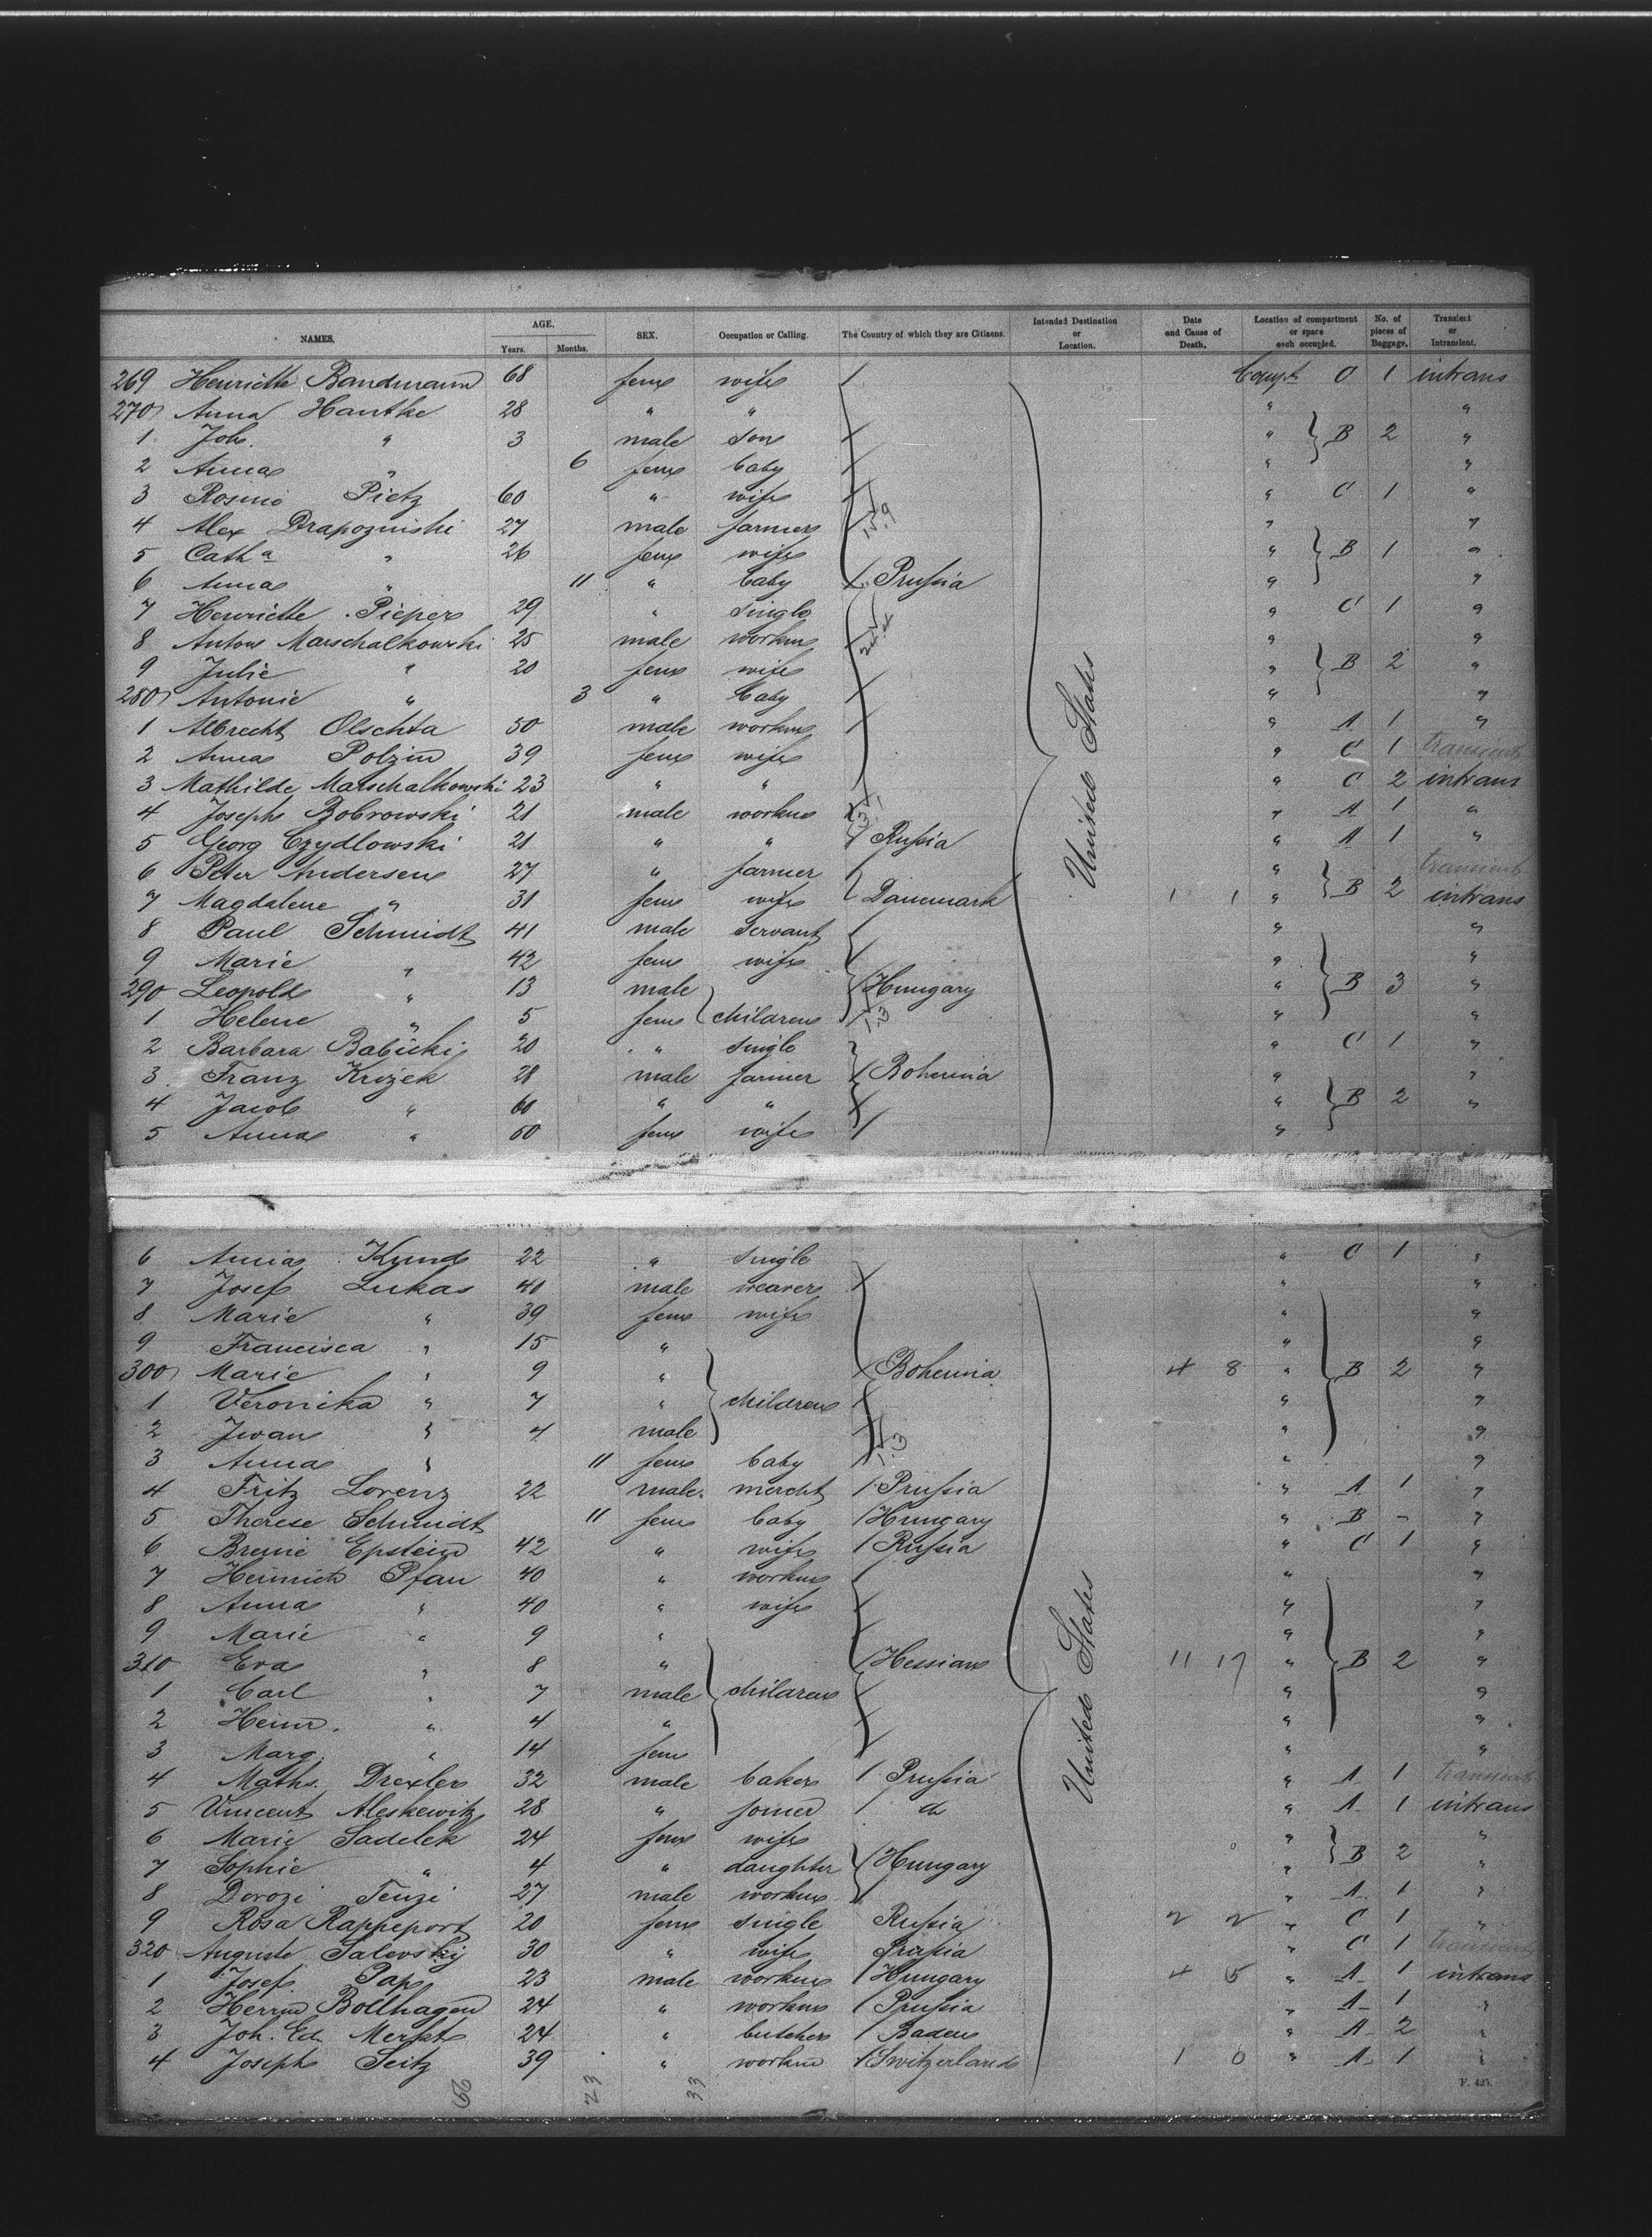 NAMES. AGE. Years. Months. SEX. Occupation or Calling. The Country of which they are Citizens. Intended Destination or Location. Date and Cause of Death. Location of compartment or space each occupied. No. of pieces of Baggage. Transient or Intransient.
269 Henriette Bandmann 68 fem wife Compt C 1 intrans
270 Anna Hantke 28 " " " "
1 Joh. " 3 male son " B 2 "
2 Anna " 6 fem baby " "
3 Rosine Pietz 60 " wife " C 1 "
4 Alex Drapozinski 27 male farmer " "
5 Catha " 26 fem wife " B 1 "
6 Anna " 11 " baby Prussia " "
7 Henriette Pieper 29 " single " C 1 "
8 Anton Marschalkowski 25 male workm " "
9 Julie " 20 fem wife " B 2 "
280 Antonie " 3 " baby " "
1 Albrecht Olschta 50 male workm " A 1 "
2 Anna Polzin 39 fem wife United States " C 1 transient
3 Mathilde Marschalkowski 23 " " " C 2 intrans
4 Joseph Bobrowski 21 male workm " A 1 "
5 Georg Czydlowski 21 " " Russia " A 1 "
6 Peter Andersen 27 " farmer " transient
7 Magdalene " 31 fem wife Danemark 1 1 " B 2 intrans
8 Paul Schmidt 41 male servant " "
9 Marie " 42 fem wife " "
290 Leopold " 13 male Hungary " B 3 "
1 Helene " 5 fem children " "
2 Barbara Babicki 20 " single " C 1 "
3 Franz Krizek 28 male farmer Bohemia " "
4 Jacob " 60 " " " B 2 "
5 Anna " 50 fem wife "
6 Anna Kund 22 " single " C 1 "
7 Josef Lukas 40 male weaver " "
8 Marie " 39 fem wife " "
9 Francisca " 15 " " "
300 Marie " 9 " Bohemia 4 8 " B 2 "
1 Veronika " 7 " children " "
2 Iwan " 4 male " "
3 Anna " 11 fem baby " "
4 Fritz Lorenz 22 male mercht Prussia " A 1 "
5 Therese Schmidt 11 fem baby Hungary " B - "
6 Breine Epstein 42 " wife Russia " C 1 "
7 Heinrich Pfau 40 " workm " "
8 Anna " 40 " wife " "
9 Marie " 9 " " "
310 Eva " 8 " Hessian United States 11 17 " B 2 "
1 Carl " 7 male children " "
2 Heinr. " 4 " " "
3 Marg. " 14 fem " "
4 Maths. Drexler 32 male baker Prussia " A 1 transient
5 Vincent Aleskewitz 28 " joiner do " A 1 intrans
6 Marie Sadelek 24 fem wife " "
7 Sophie " 4 " daughter Hungary " B 2 "
8 Dorozi Tenzi 27 male workm " A 1 "
9 Rosa Rappeport 20 fem single Russia 2 2 " C 1 "
320 Auguste Salevsky 30 " wife Prussia " C 1 transient
1 Josef Pap 23 male workm Hungary 4 5 " A 1 intrans
2 Herm Bollhagen 24 " workm Prussia " A 1 "
3 Joh. Ed. Merkt 24 " butcher Baden " A 2 "
4 Joseph Seitz 39 " workm Switzerland 1 0 " A 1 "
23 33 F. 425.